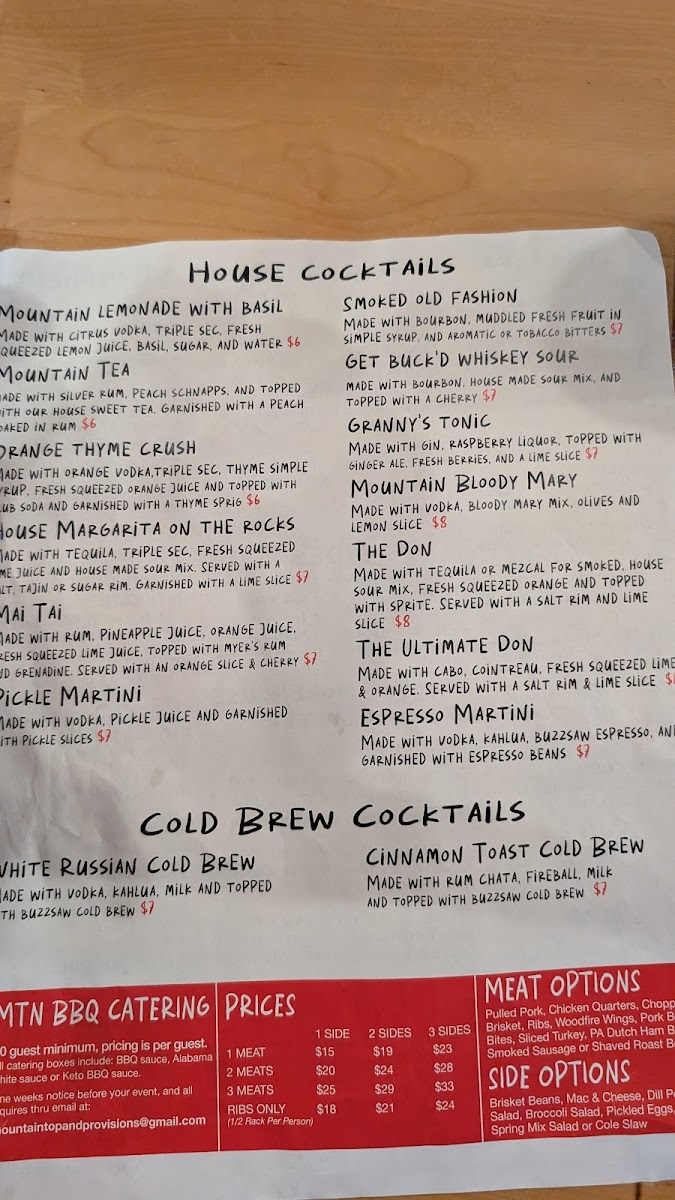 HOUSE COCKTAILS
MOUNTAIN LEMONADE WITH BASIL
MADE WITH CITRUS VODKA, TRIPLE SEC, FRESH
QUEEZED LEMON JUICE, BASIL, SUGAR, AND WATER $6
MOUNTAIN TEA
MADE WITH SILVER RUM, PEACH SCHNAPPS, AND TOPPED
ITH OUR HOUSE SWEET TEA. GARNISHED WITH A PEACH
OAKED IN RUM $6
ORANGE THYME CRUSH
MADE WITH ORANGE VODKA,TRIPLE SEC, THYME SIMPLE
YRUP, FRESH SQUEEZED ORANGE JUICE AND TOPPED WITH
LUB SODA AND GARNISHED WITH A THYME SPRIG $6
HOUSE MARGARITA ON THE ROCKS
MADE WITH TEQUILA, TRIPLE SEC, FRESH SQUEEZED
ME JUICE AND HOUSE MADE SOUR MIX. SERVED WITH A
LT, TAJIN OR SUGAR RIM. GARNISHED WITH A LIME SLICE $7
MAI TAI
MADE WITH RUM, PINEAPPLE JUICE, ORANGE JUICE,
RESH SQUEEZED LIME JUICE, TOPPED WITH MYER'S RUM
ND GRENADINE. SERVED WITH AN ORANGE SLICE & CHERRY $7
PICKLE MARTINI
MADE WITH VODKA, PICKLE JUICE AND GARNISHED
ITH PICKLE SLICES $7
SMOKED OLD FASHION
MADE WITH BOURBON, MUDDLED FRESH FRUIT IN
SIMPLE SYRUP, AND AROMATIC OR TOBACCO BITTERS $7
GET BUCK'D WHISKEY SOUR
MADE WITH BOURBON, HOUSE MADE SOUR MIX, AND
TOPPED WITH A CHERRY $7
GRANNY'S TONIC
MADE WITH GIN, RASPBERRY LIQUOR, TOPPED WITH
GINGER ALE, FRESH BERRIES, AND A LIME SLICE $7
MOUNTAIN BLOODY MARY
MADE WITH VODKA, BLOODY MARY MIX, OLIVES AND
LEMON SLICE $8
THE DON
MADE WITH TEQUILA OR MEZCAL FOR SMOKED, HOUSE
SOUR MIX, FRESH SQUEEZED ORANGE AND TOPPED
WITH SPRITE. SERVED WITH A SALT RIM AND LIME
SLICE $8
THE ULTIMATE DON
MADE WITH CABO, COINTREAU, FRESH SQUEEZED LIME
& ORANGE. SERVED WITH A SALT RIM & LIME SLICE
ESPRESSO MARTINI
MADE WITH VODKA, KAHLUA, BUZZSAW ESPRESSO, AN
GARNISHED WITH ESPRESSO BEANS $7
COLD BREW COCKTAILS
WHITE RUSSIAN COLD BREW
MADE WITH VODKA, KAHLUA, MILK AND TOPPED
TH BUZZSAW COLD BREW $7
CINNAMON TOAST COLD BREW
MADE WITH RUM CHATA, FIREBALL, MILK
AND TOPPED WITH BUZZSAW COLD BREW $7
MTN BBQ CATERING
0 guest minimum, pricing is per guest.
ll catering boxes include: BBQ sauce, Alabama
hite sauce or Keto BBQ sauce.
ne weeks notice before your event, and all
quires thru email at:
mountaintopandprovisions@gmail.com
PRICES
1 SIDE 2 SIDES 3 SIDES
1 MEAT $15 $19 $23
2 MEATS $20 $24 $28
3 MEATS $25 $29 $33
RIBS ONLY $18 $21 $24
(1/2 Rack Per Person)
MEAT OPTIONS
Pulled Pork, Chicken Quarters, Chopp
Brisket, Ribs, Woodfire Wings, Pork B
Bites, Sliced Turkey, PA Dutch Ham B
Smoked Sausage or Shaved Roast B
SIDE OPTIONS
Brisket Beans, Mac & Cheese, Dill P
Salad, Broccoli Salad, Pickled Eggs,
Spring Mix Salad or Cole Slaw